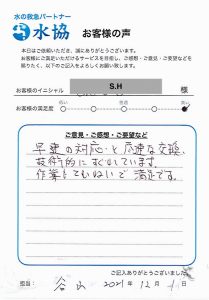 水の救急パートナー
水協 お客様の声
本日はご依頼いただき、誠にありがとうございます。
お客様にご満足いただけるサービスを目指し、ご感想・ご意見・ご要望などを
賜りたく、以下のご記入をよろしくお願い致します。
お客様のイニシャル S.H 様
お客様の満足度 低い 普通 高い
ご意見・ご感想・ご要望など
早速の対応と迅速な交換、
技術的にすぐれています。
作業もていねいで満足です。
ご記入ありがとうございました。
担当: 谷山 2021年 12月 1日